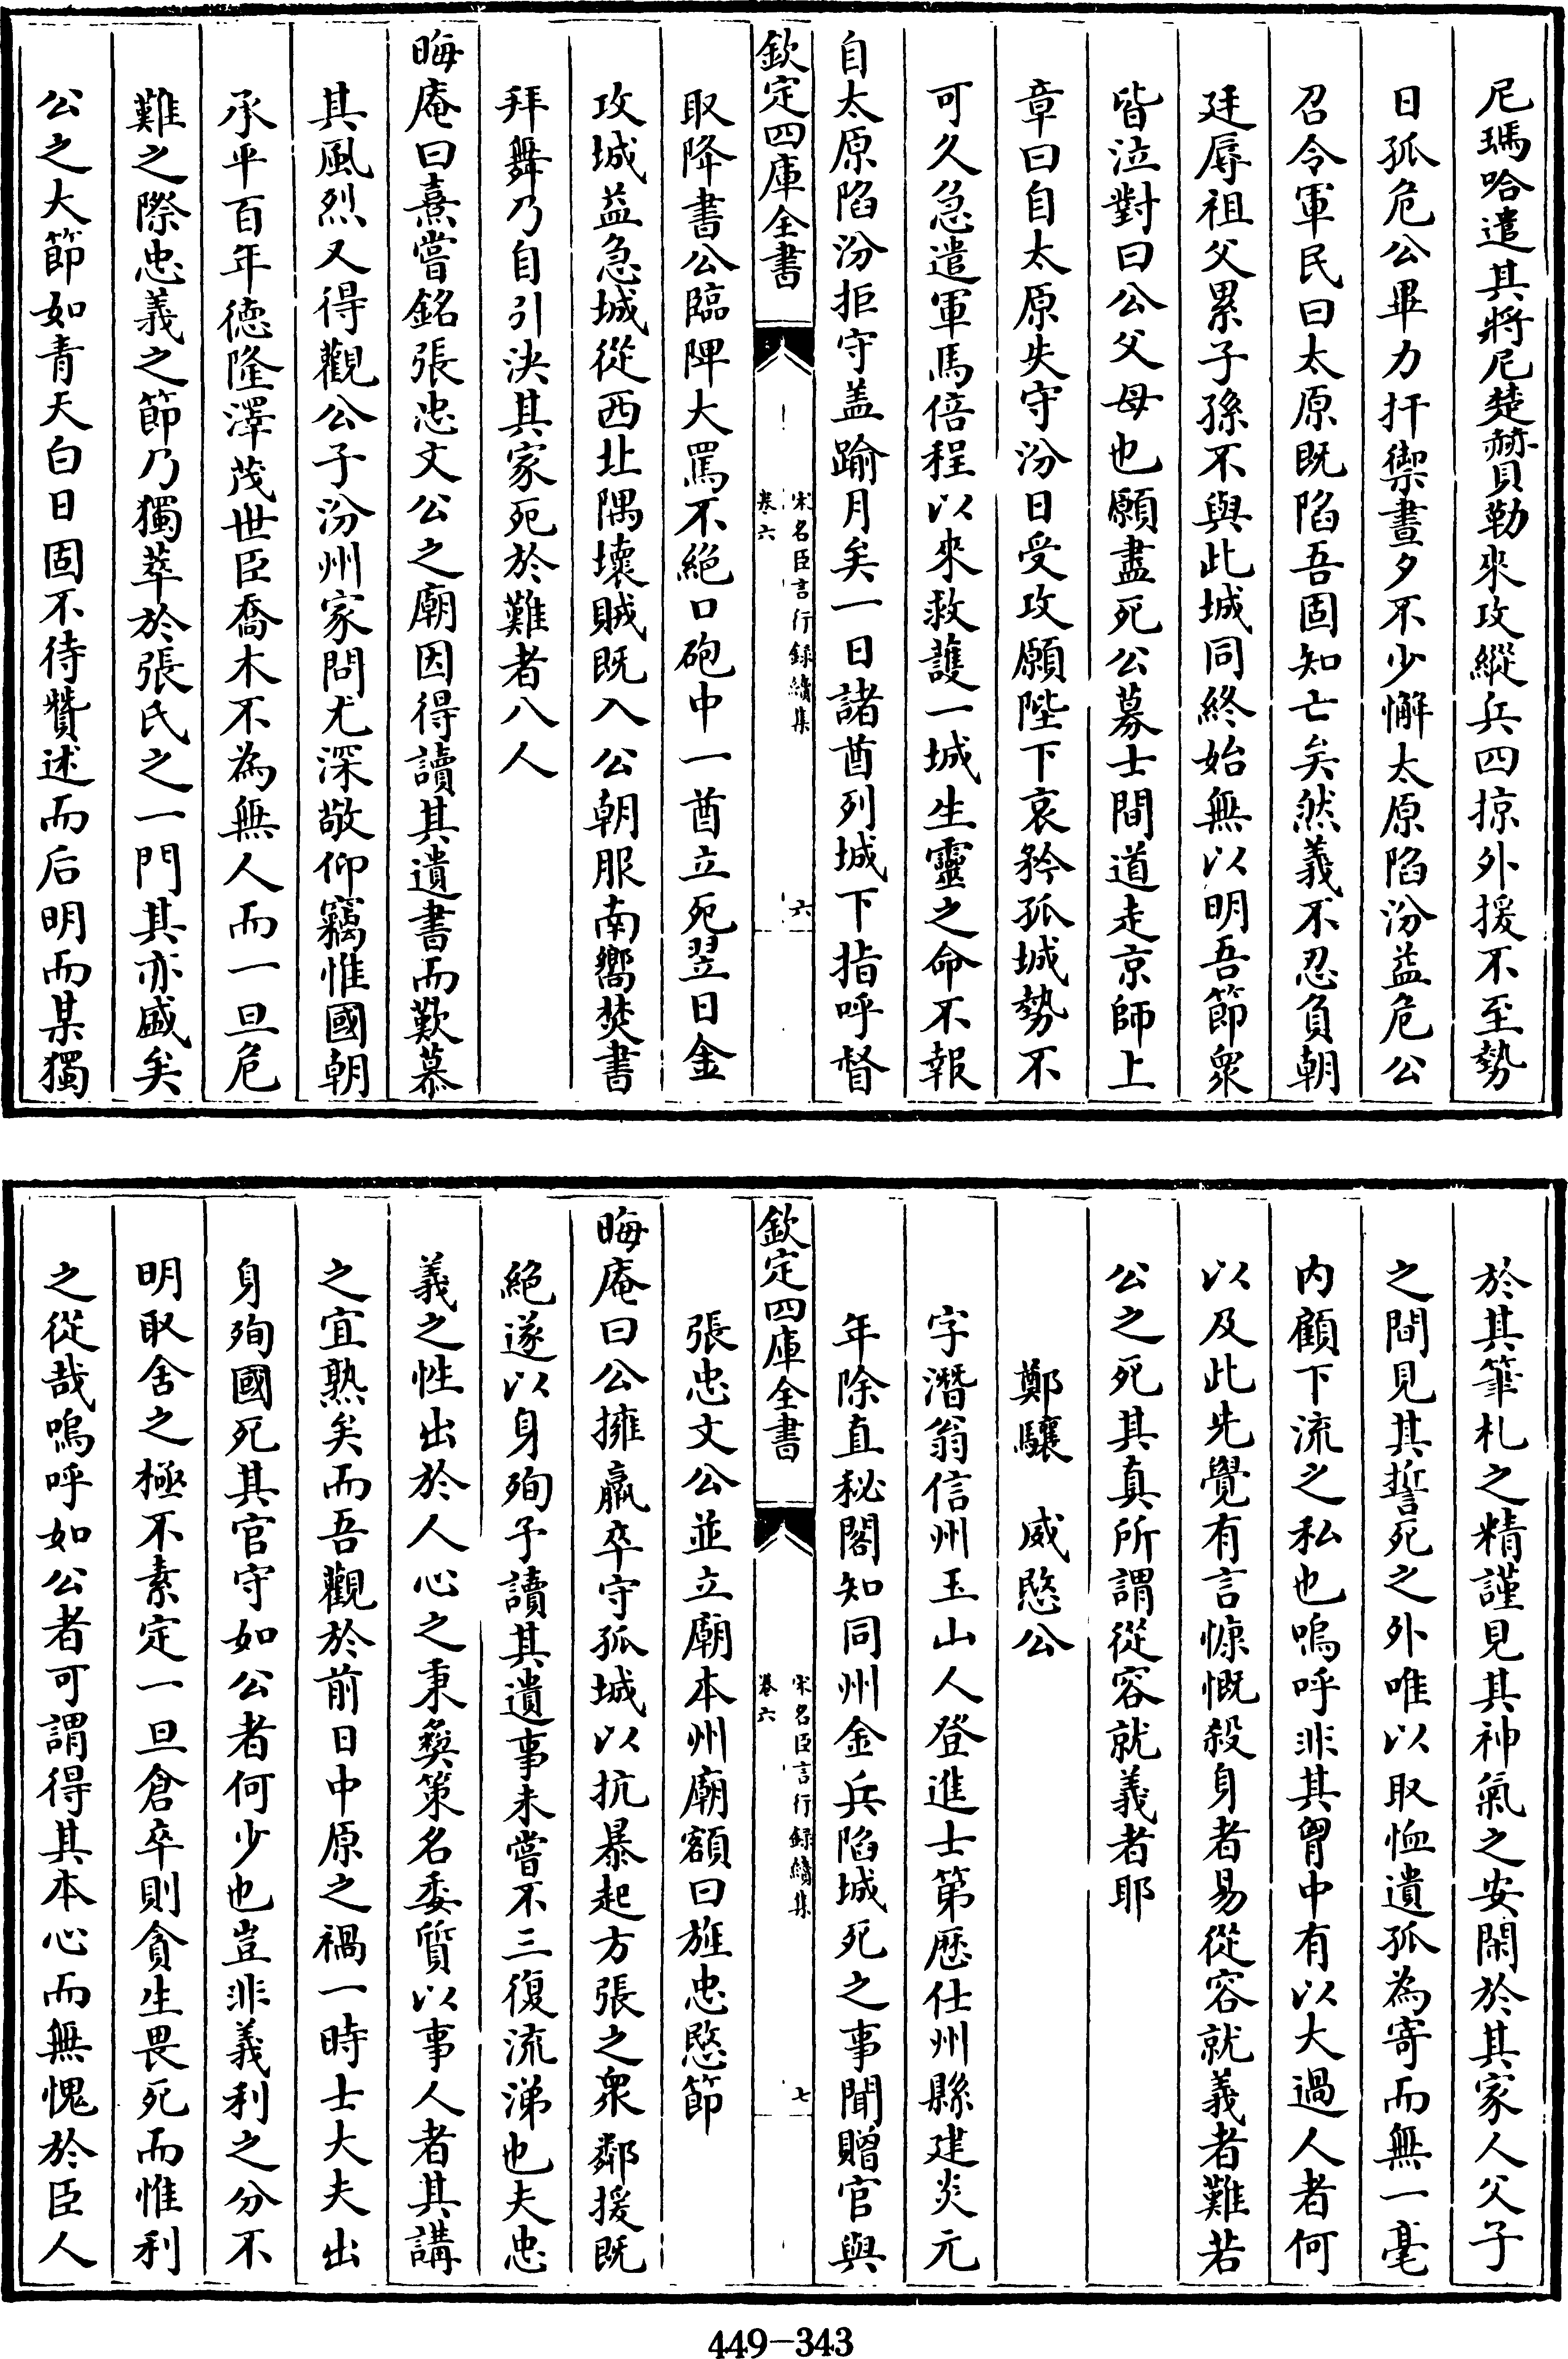 尼瑪哈遣其將尼楚赫貝勒來攻縱兵四掠外援不至勢
日孤危公畢力扞禦晝夕不少懈太原陷汾益危公
召令軍民曰太原既陷吾固知亡矣然義不忍負朝
廷辱祖父累子孫不與此城同終始無以明吾節衆
皆泣對曰公父母也願盡死公募士間道走京師上
章曰自太原失守汾日受攻願陛下哀矜孤城勢不
可久急遣軍馬倍程以來救護一城生靈之命不報
自太原陷汾拒守盖踰月矣一日諸酋列城下指呼督
欽定四庫全書
宋名臣言行録續集
卷六
六
取降書公臨陴大罵不絕口砲中一酋立死翌日金
攻城益急城從西北隅壞賊既入公朝服南嚮焚書
拜舞乃自引決其家死於難者八人
晦庵曰熹嘗銘張忠文公之廟因得讀其遺書而歎慕
其風烈又得觀公子汾州家問尤深敬仰竊惟國朝
承平百年德隆澤茂世臣喬木不為無人而一旦危
難之際忠義之節乃獨萃於張氏之一門其亦盛矣
公之大節如青天白日固不待贊述而后明而某獨
於其筆札之精謹見其神氣之安閑於其家人父子
之間見其誓死之外唯以取恤遺孤為寄而無一毫
内顧下流之私也嗚呼非其胷中有以大過人者何
以及此先覺有言慷慨殺身者易從容就義者難若
公之死其真所謂從容就義者耶
鄭驤　威愍公
字潛翁信州玉山人登進士第歷仕州縣建炎元
年除直秘閣知同州金兵陷城死之事聞贈官與
欽定四庫全書
宋名臣言行録續集
卷六
七
張忠文公並立廟本州廟額曰旌忠愍節
晦庵曰公擁羸卒守孤城以抗暴起方張之衆鄰援既
絕遂以身殉予讀其遺事未嘗不三復流涕也夫忠
義之性出於人心之秉彝策名委質以事人者其講
之宜熟矣而吾觀於前日中原之禍一時士大夫出
身殉國死其官守如公者何少也豈非義利之分不
明取舍之極不素定一旦倉卒則貪生畏死而惟利
之從哉嗚呼如公者可謂得其本心而無愧於臣人
449-343